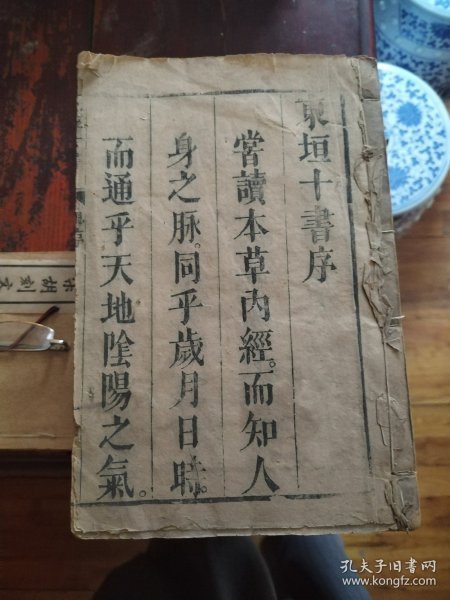 東垣十書序
嘗讀本草內經。而知人
身之脉。同乎歲月日時。
而通乎天地陰陽之氣。
宋胡刻文
孔夫子旧书网
www.kongfz.com